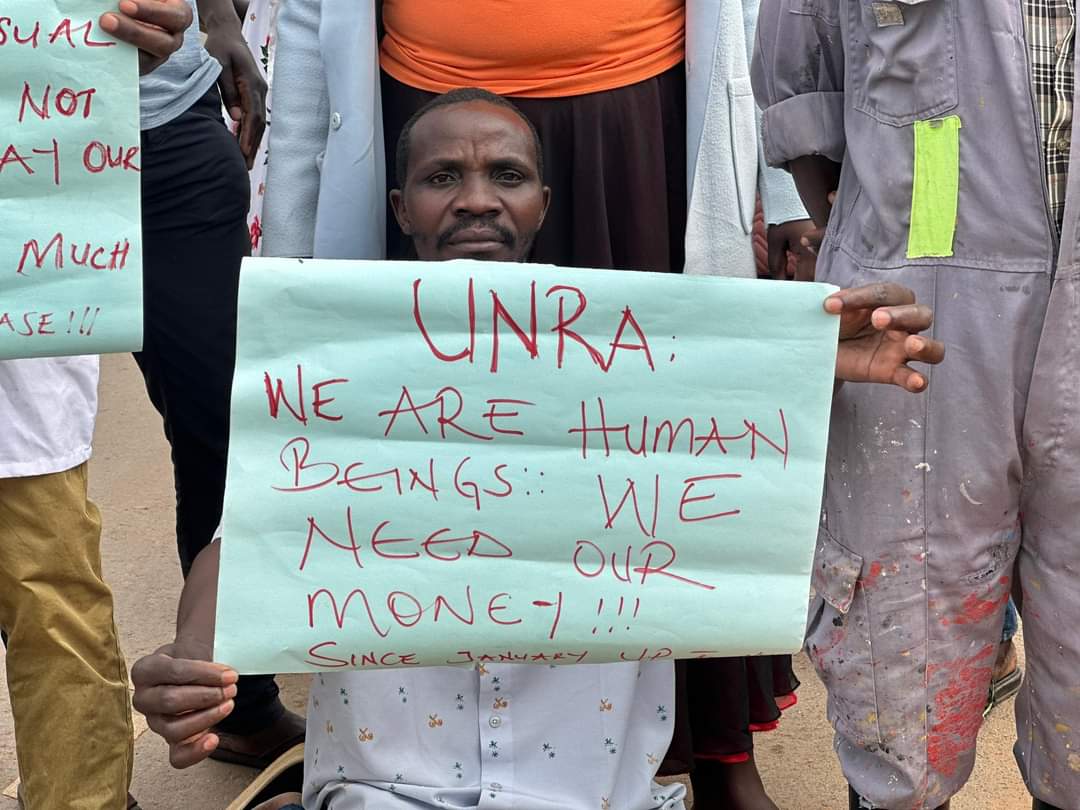 SUAL
NOT
AY OUR
MUCH
ASE!!!
UNRA:
WE ARE HUMAN
BEINGS:: WE
NEED OUR
MONEY!!!
SINCE JANUARY UP